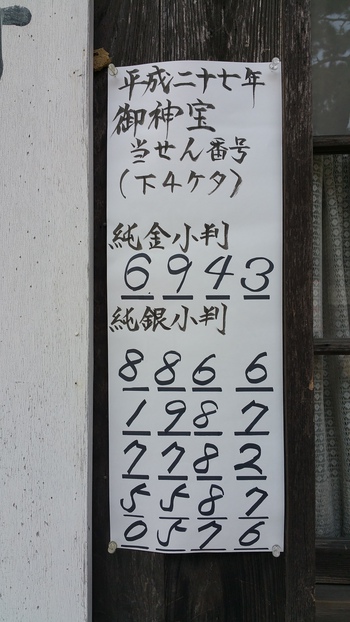 平成二十七年
御神宝
当せん番号
(下4ケタ)
純金小判
6943
純銀小判
8866
1987
7782
5587
0576